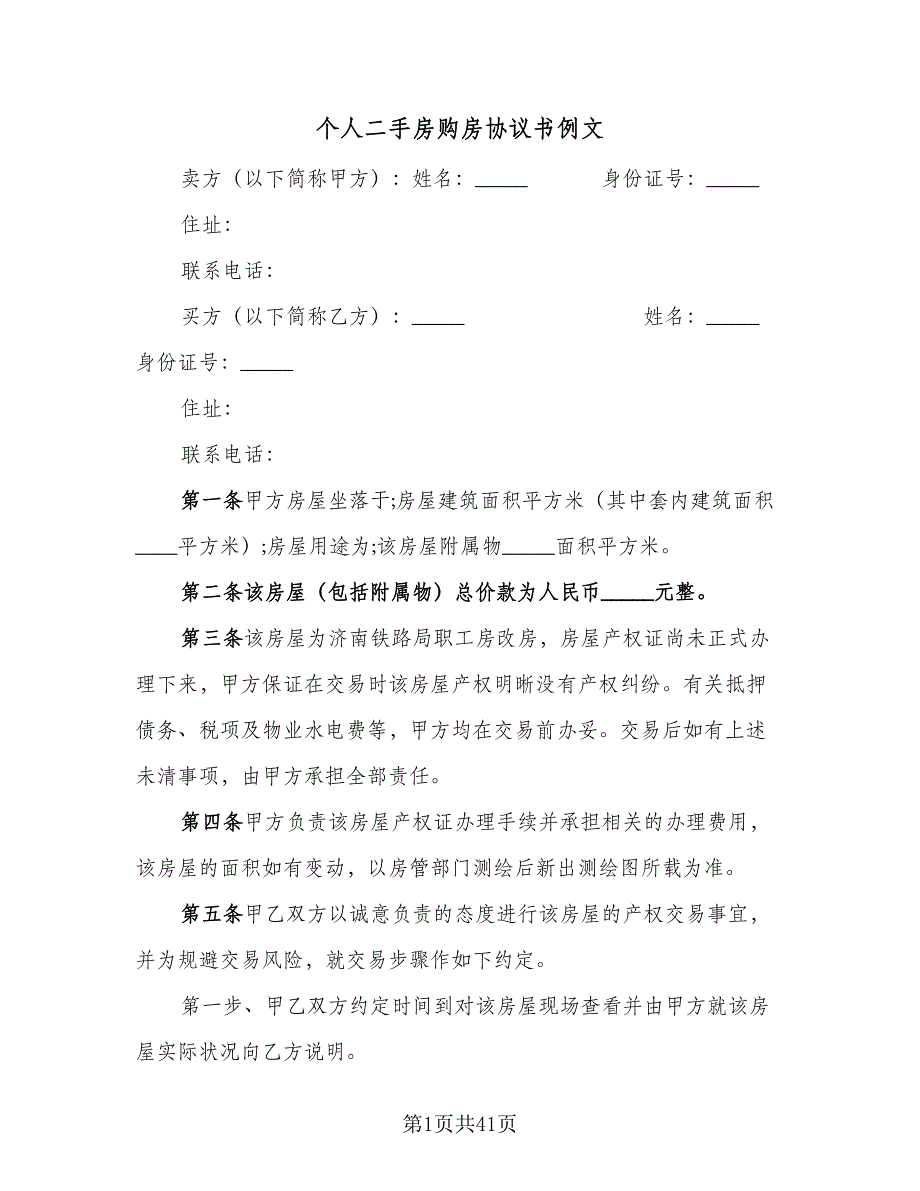 个人二手房购房协议书例文
卖方（以下简称甲方）：姓名：_____ 身份证号：_____
住址：
联系电话：
买方（以下简称乙方）：_____ 姓名：_____
身份证号：_____
住址：
联系电话：
第一条甲方房屋坐落于;房屋建筑面积平方米（其中套内建筑面积
____平方米）;房屋用途为;该房屋附属物_____面积平方米。
第二条该房屋（包括附属物）总价款为人民币_____元整。
第三条该房屋为济南铁路局职工房改房，房屋产权证尚未正式办
理下来，甲方保证在交易时该房屋产权明晰没有产权纠纷。有关抵押
债务、税项及物业水电费等，甲方均在交易前办妥。交易后如有上述
未清事项，由甲方承担全部责任。
第四条甲方负责该房屋产权证办理手续并承担相关的办理费用，
该房屋的面积如有变动，以房管部门测绘后新出测绘图所载为准。
第五条甲乙双方以诚意负责的态度进行该房屋的产权交易事宜，
并为规避交易风险，就交易步骤作如下约定。
第一步、甲乙双方约定时间到对该房屋现场查看并由甲方就该房
屋实际状况向乙方说明。
第1页共41页